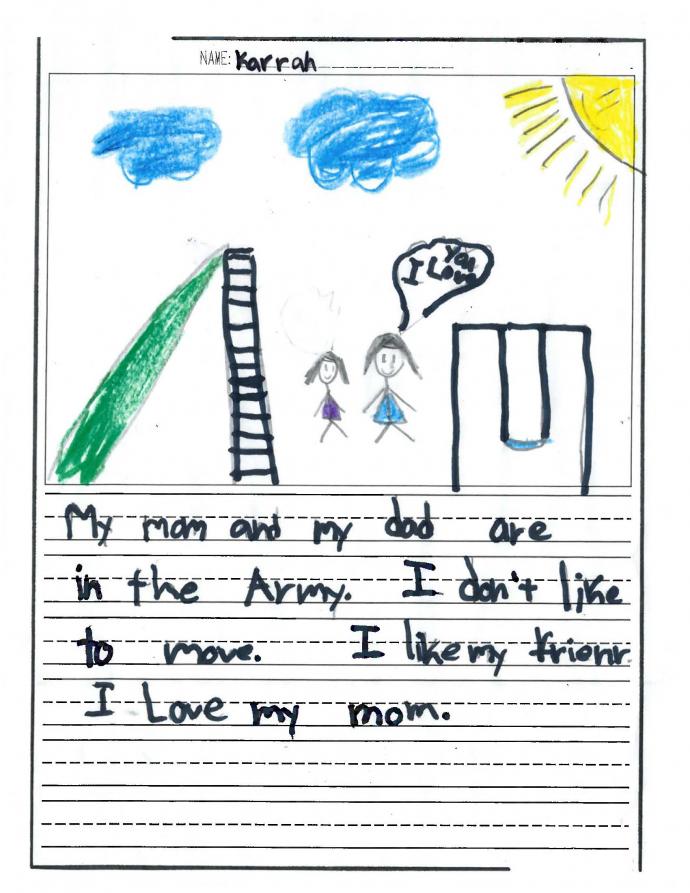 NAME: Karrah
You
I Love
My mom and my dad are
in the Army. I don't like
to move. I like my frienr
I Love my mom.